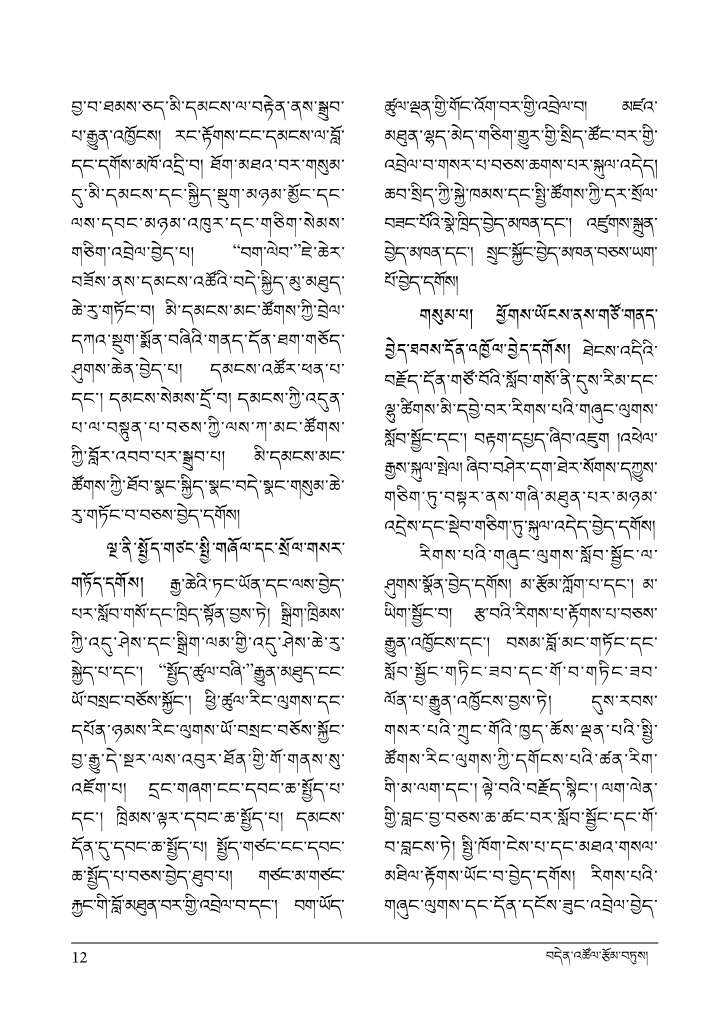 བྱ་བ་ཐམས་ཅད་མི་དམངས་ལ་བརྟེན་ནས་སྒྲུབ་
པ་རྒྱུན་འཁྱོངས། རང་རྟོགས་ངང་དམངས་ལ་བློ་
དང་དགོས་མཁོ་འདྲི་བ། ཐོག་མཐའ་བར་གསུམ་
དུ་མི་དམངས་དང་སྐྱིད་སྡུག་མཉམ་མྱོང་དང་
ལས་དབང་མཉམ་འཁུར་དང་གཅིག་སེམས་
གཅིག་འབྲེལ་བྱེད་པ། “བག་ལེབ་”ཇེ་ཆེར་
བཟོས་ནས་དམངས་འཚོའི་བདེ་སྐྱིད་མུ་མཐུད་
ཆེ་རུ་གཏོང་བ། མི་དམངས་མང་ཚོགས་ཀྱི་བྲེལ་
དཀའ་སྡུག་སྨོན་བཞིའི་གནད་དོན་ཐག་གཅོད་
ཤུགས་ཆེན་བྱེད་པ། དམངས་འཚོར་ཕན་པ་
དང་། དམངས་སེམས་དྲོ་བ། དམངས་ཀྱི་འདུན་
པ་ལ་བསྟུན་པ་བཅས་ཀྱི་ལས་ཀ་མང་ཚོགས་
ཀྱི་བློར་འབབ་པར་སྒྲུབ་པ། མི་དམངས་མང་
ཚོགས་ཀྱི་ཐོབ་སྣང་སྐྱིད་སྣང་བདེ་སྣང་གསུམ་ཆེ་
རུ་གཏོང་བ་བཅས་བྱེད་དགོས།
ལྔ་ནི་སྤྱོད་གཙང་སྤྱི་གཞོལ་དང་སྲོལ་གསར་
གཏོད་དགོས། རྒྱ་ཆེའི་ཏང་ཡོན་དང་ལས་བྱེད་
པར་སློབ་གསོ་དང་ཁྲིད་སྟོན་བྱས་ཏེ། སྒྲིག་ཁྲིམས་
ཀྱི་འདུ་ཤེས་དང་སྒྲིག་ལམ་གྱི་འདུ་ཤེས་ཆེ་རུ་
སྐྱེད་པ་དང་། “སྤྱོད་ཚུལ་བཞི་”རྒྱུན་མཐུད་ངང་
ཡོ་བསྲང་བཅོས་སྐྱོང་། ཕྱི་ཚུལ་རིང་ལུགས་དང་
དཔོན་ཉམས་རིང་ལུགས་ཡོ་བསྲང་བཅོས་སྐྱོང་
བྱ་རྒྱུ་དེ་སྔར་ལས་འབུར་ཐོན་གྱི་གོ་གནས་སུ་
འཇོག་པ། དྲང་གཞག་ངང་དབང་ཆ་སྤྱོད་པ་
དང་། ཁྲིམས་ལྟར་དབང་ཆ་སྤྱོད་པ། དམངས་
དོན་དུ་དབང་ཆ་སྤྱོད་པ། སྤྱོད་གཙང་ངང་དབང་
ཆ་སྤྱོད་པ་བཅས་བྱེད་ཐུབ་པ། གཙང་མ་གཙང་
རྐྱང་གི་བློ་མཐུན་བར་གྱི་འབྲེལ་བ་དང་། བག་ཡོད་
ཚུལ་ལྡན་གྱི་གོང་འོག་བར་གྱི་འབྲེལ་བ། མཛའ་
མཐུན་ལྷད་མེད་གཅིག་གྱུར་གྱི་སྲིད་ཚོང་བར་གྱི་
འབྲེལ་བ་གསར་པ་བཅས་ཆགས་པར་སྐུལ་འདེད།
ཆབ་སྲིད་ཀྱི་སྐྱེ་ཁམས་དང་སྤྱི་ཚོགས་ཀྱི་དར་སྲོལ་
བཟང་པོའི་སྣེ་ཁྲིད་བྱེད་མཁན་དང་། འཛུགས་སྐྲུན་
བྱེད་མཁན་དང་། སྲུང་སྐྱོང་བྱེད་མཁན་བཅས་ཡག་
པོ་བྱེད་དགོས།
གསུམ་པ། ཕྱོགས་ཡོངས་ནས་གཙོ་གནད་
བྱེད་ཐབས་དོན་འཁྱོལ་བྱེད་དགོས། ཐེངས་འདིའི་
བརྗོད་དོན་གཙོ་བོའི་སློབ་གསོ་ནི་དུས་རིམ་དང་
ལྷུ་ཚིགས་མི་དབྱེ་བར་རིགས་པའི་གཞུང་ལུགས་
སློབ་སྦྱོང་དང་། བརྟག་དཔྱད་ཞིབ་འཇུག །འཕེལ་
རྒྱས་སྐུལ་སྤེལ། ཞིབ་བཤེར་དག་ཐེར་སོགས་དཀྱུས་
གཅིག་ཏུ་བསྟར་ནས་གཞི་མཐུན་པར་མཉམ་
འདྲེས་དང་སྡེབ་གཅིག་ཏུ་སྐུལ་འདེད་བྱེད་དགོས།
རིགས་པའི་གཞུང་ལུགས་སློབ་སྦྱོང་ལ་
ཤུགས་སྣོན་བྱེད་དགོས། མ་རྩོམ་ཀློག་པ་དང་། མ་
ཡིག་སྦྱོང་བ། རྩ་བའི་རིགས་པ་རྟོགས་པ་བཅས་
རྒྱུན་འཁྱོངས་དང་། བསམ་བློ་མང་གཏོང་དང་
སློབ་སྦྱོང་གཏིང་ཟབ་དང་གོ་བ་གཏིང་ཟབ་
ལོན་པ་རྒྱུན་འཁྱོངས་བྱས་ཏེ། དུས་རབས་
གསར་པའི་ཀྲུང་གོའི་ཁྱད་ཆོས་ལྡན་པའི་སྤྱི་
ཚོགས་རིང་ལུགས་ཀྱི་དགོངས་པའི་ཚན་རིག་
གི་མ་ལག་དང་། ལྟེ་བའི་བརྗོད་སྙིང་། ལག་ལེན་
གྱི་བླང་བྱ་བཅས་ཆ་ཚང་བར་སློབ་སྦྱོང་དང་གོ་
བ་བླངས་ཏེ། སྤྱི་ཁོག་ངེས་པ་དང་མཐའ་གསལ་
མཐིལ་རྟོགས་ཡོང་བ་བྱེད་དགོས། རིགས་པའི་
གཞུང་ལུགས་དང་དོན་དངོས་ཟུང་འབྲེལ་བྱེད་
12 བདེན་འཚོལ་རྩོམ་བཏུས།